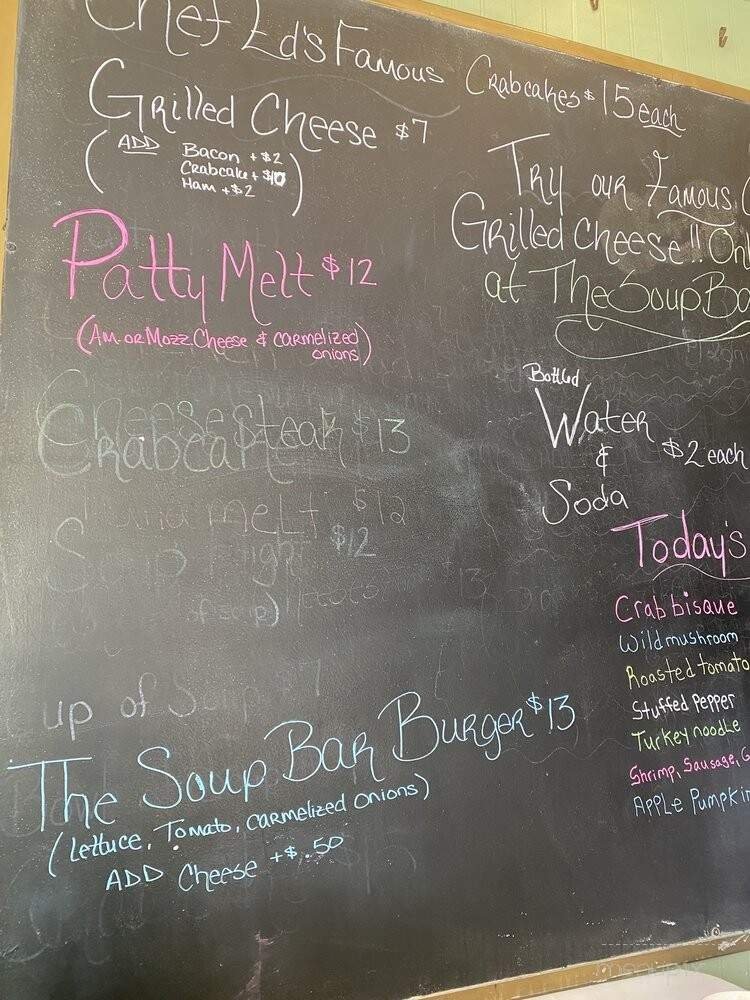 Chef Ed's Famous Crabcakes $15 each
Grilled Cheese $7
(ADD Bacon +$2
Crabcake +$10
Ham +$2)
Patty Melt $12
(Am. or Mozz Cheese & carmelized
onions)
Cheese Steak $13
Crabcake
melt $12
Soup $12
up of Soup $7
The Soup Bar Burger $13
(Lettuce, Tomato, carmelized onions)
ADD Cheese +$.50
Try our Famous
Grilled Cheese!!
at The Soup
Bottled
Water
&
Soda
$2 each
Today's
Crab bisque
Wild mushroom
Roasted tomato
Stuffed Pepper
Turkey noodle
Shrimp, Sausage,
Apple